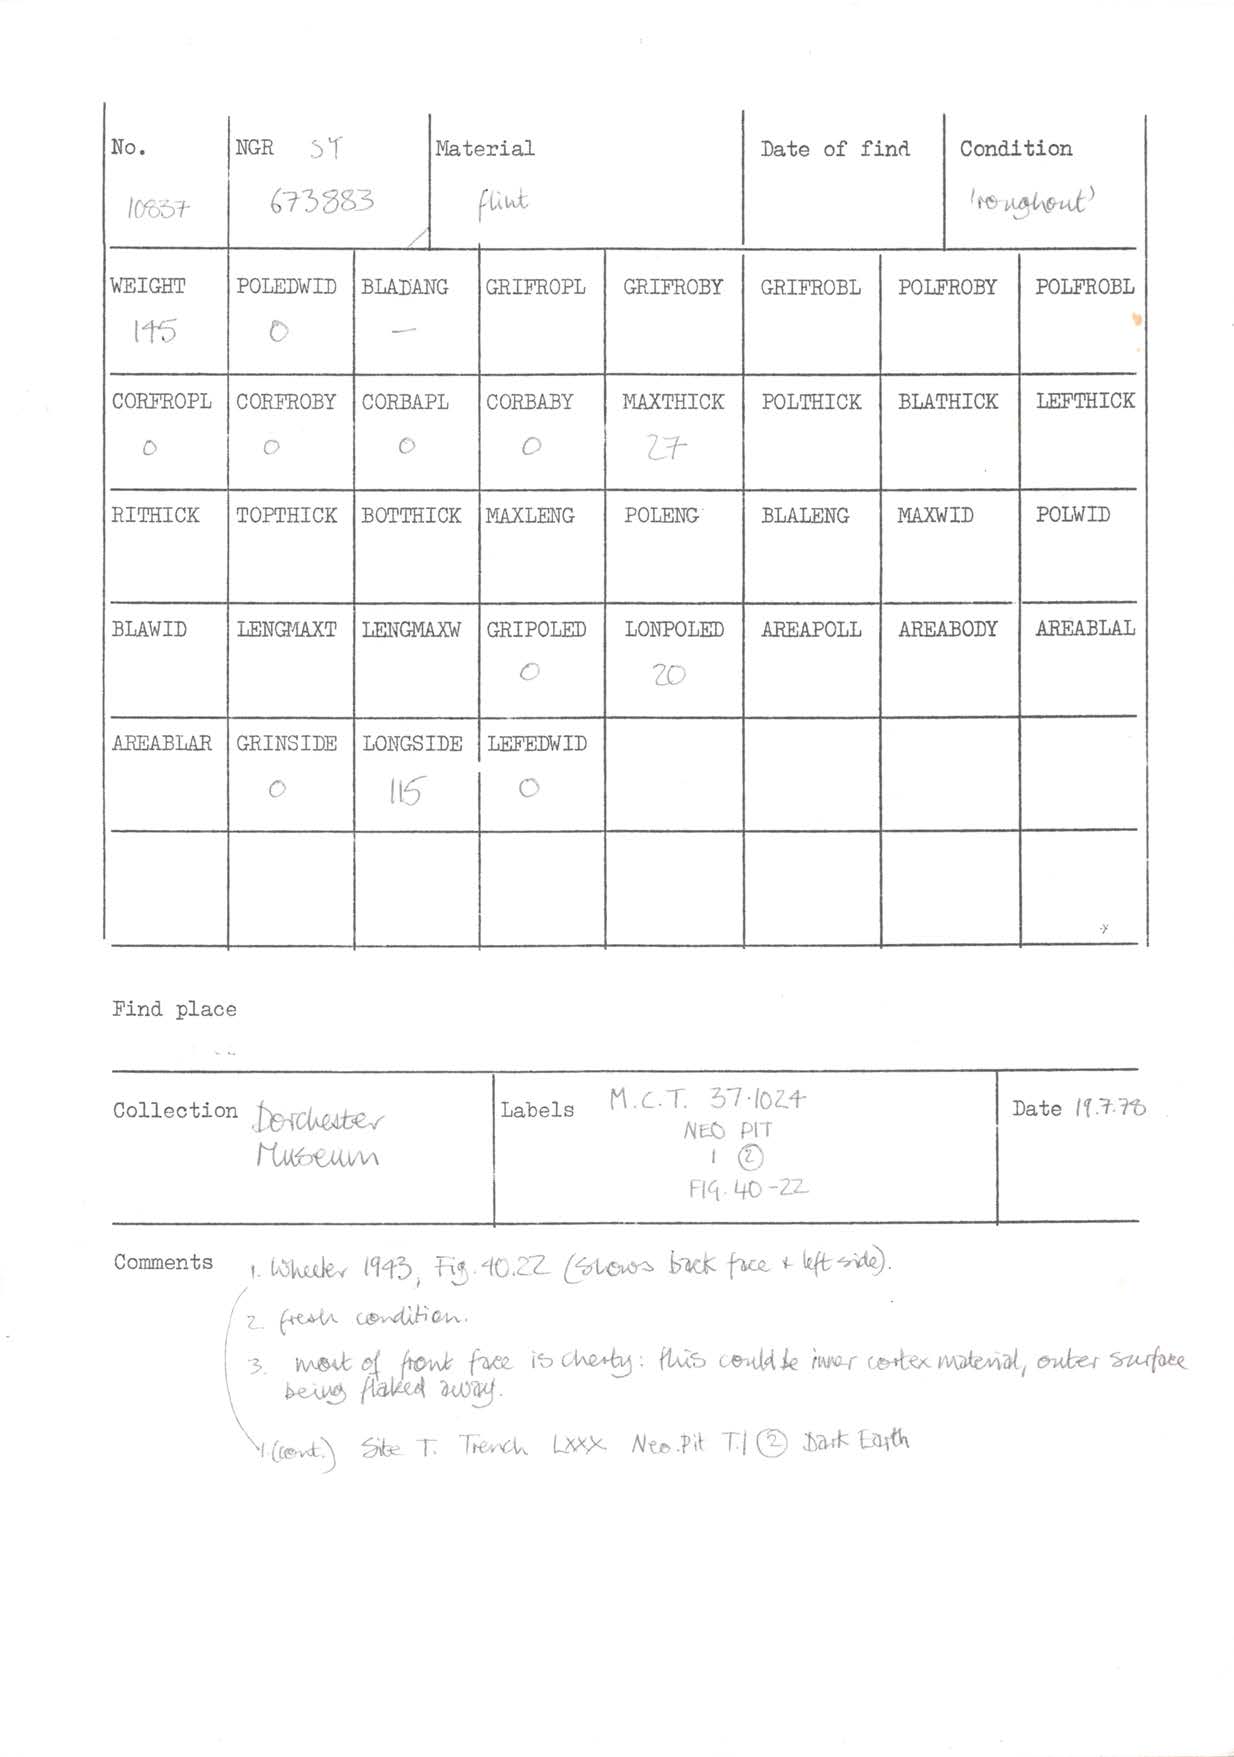 No. NGR ST Material Date of find Condition
10837 673883 flint 'roughout'
WEIGHT POLEDWID BLADANG GRIFROPL GRIFROBY GRIFROBL POLFROBY POLFROBL
145 0 —
CORFROPL CORFROBY CORBAPL CORBABY MAXTHICK POLTHICK BLATHICK LEFTHICK
0 0 0 0 27
RITHICK TOPTHICK BOTTHICK MAXLENG POLENG BLALENG MAXWID POLWID
BLAWID LENGMAXT LENGMAXW GRIPOLED LONPOLED AREAPOLL AREABODY AREABLAL
0 20
AREABLAR GRINSIDE LONGSIDE LEFEDWID
0 115 0
Find place
Collection Dorchester
Museum
Labels M.C.T. 37.1024
NEO PIT
1 ②
FIG. 40-22
Date 19.7.78
Comments 1. Wheeler 1943, Fig. 40.22 (Shows back face + left side).
2. fresh condition.
3. most of front face is cherty: this could be inner cortex material, outer surface
being flaked away.
1 (cont.) Site T. Trench LXXX Neo. Pit T.1 ② Dark Earth